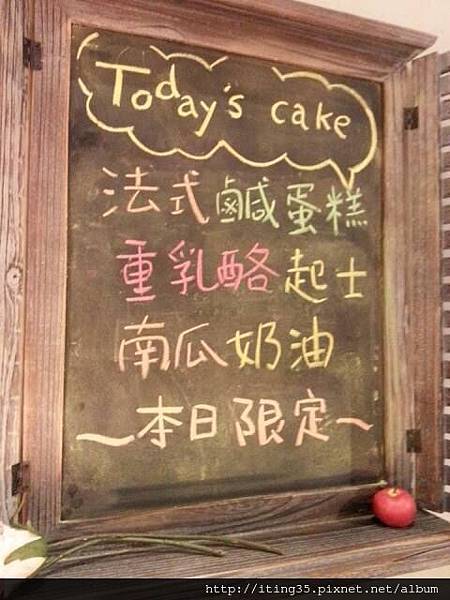 Today's cake
法式鹹蛋糕
重乳酪起士
南瓜奶油
～本日限定～
http://iting35.pixnet.net/album